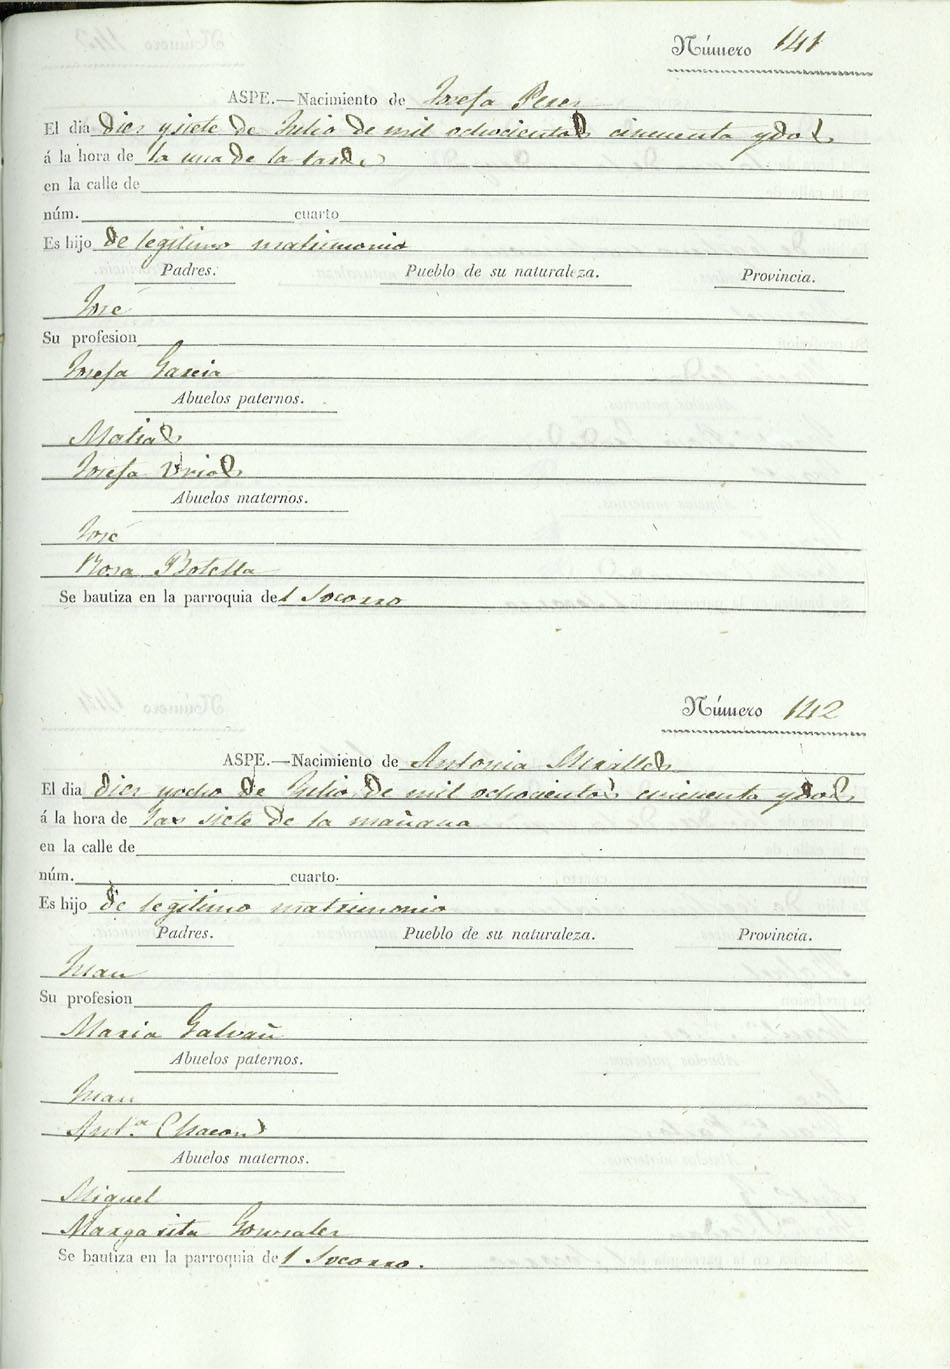 Número 141
ASPE.—Nacimiento de Josefa Peres
El dia dies y siete de Julio de mil ochocientos cincuenta y dos
á la hora de la una de la tarde
en la calle de
núm. cuarto
Es hijo de legitimo matrimonio
Padres. Pueblo de su naturaleza. Provincia.
José
Su profesion
Josefa Garcia
Abuelos paternos.
Matias
Josefa Urios
Abuelos maternos.
José
Rosa Botella
Se bautiza en la parroquia de l Socorro
Número 142
ASPE.—Nacimiento de Antonia Miralles
El dia dies y ocho de Julio de mil ochocientos cincuenta y dos
á la hora de las siete de la mañana
en la calle de
núm. cuarto.
Es hijo de legitimo matrimonio
Padres. Pueblo de su naturaleza. Provincia.
Juan
Su profesion
Maria Galvañ
Abuelos paternos.
Juan
Ant.ª Chacon
Abuelos maternos.
Miguel
Margarita Gonsales
Se bautiza en la parroquia de l Socorro.